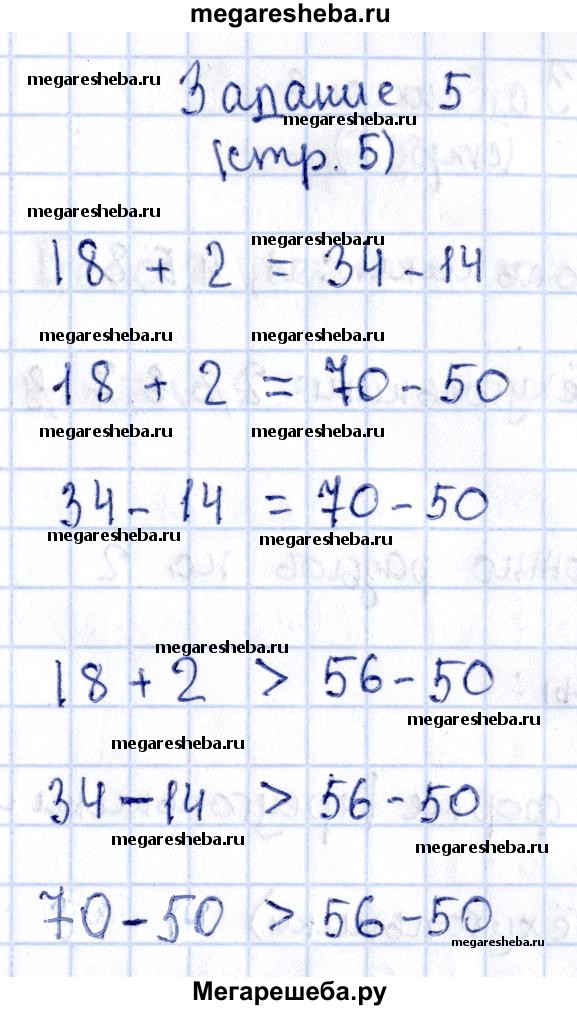 megaresheba.ru
megaresheba.ru
Задание 5
megaresheba.ru
(стр. 5)
megaresheba.ru
megaresheba.ru
18 + 2 = 34 - 14
megaresheba.ru megaresheba.ru
18 + 2 = 70 - 50
megaresheba.ru megaresheba.ru
34 - 14 = 70 - 50
megaresheba.ru megaresheba.ru
megaresheba.ru
18 + 2 > 56 - 50
megaresheba.ru
megaresheba.ru
34 - 14 > 56 - 50
megaresheba.ru megaresheba.ru
70 - 50 > 56 - 50
megaresheba.ru
Мегарешеба.ру